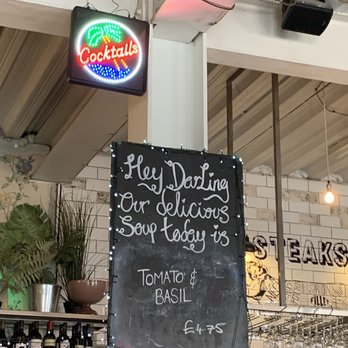 Cocktails
Hey Darling
Our delicious
Soup today is
TOMATO &
BASIL
£4.75
STEAKS
FILLE